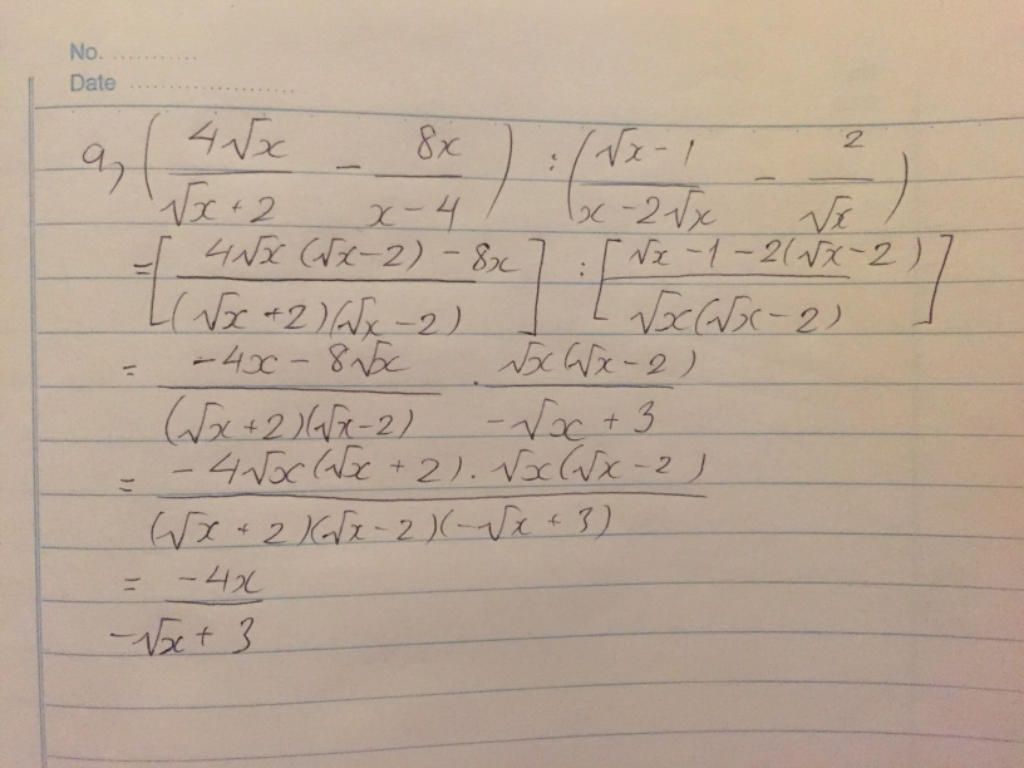 No. ............
Date ......................
a, (4√x / √x + 2 - 8x / x - 4) : (√x - 1 / x - 2√x - 2 / √x)
= [4√x (√x - 2) - 8x / (√x + 2)(√x - 2)] : [√x - 1 - 2(√x - 2) / √x(√x - 2)]
= -4x - 8√x / (√x + 2)(√x - 2) . √x(√x - 2) / -√x + 3
= -4√x(√x + 2) . √x(√x - 2) / (√x + 2)(√x - 2)(-√x + 3)
= -4x / -√x + 3